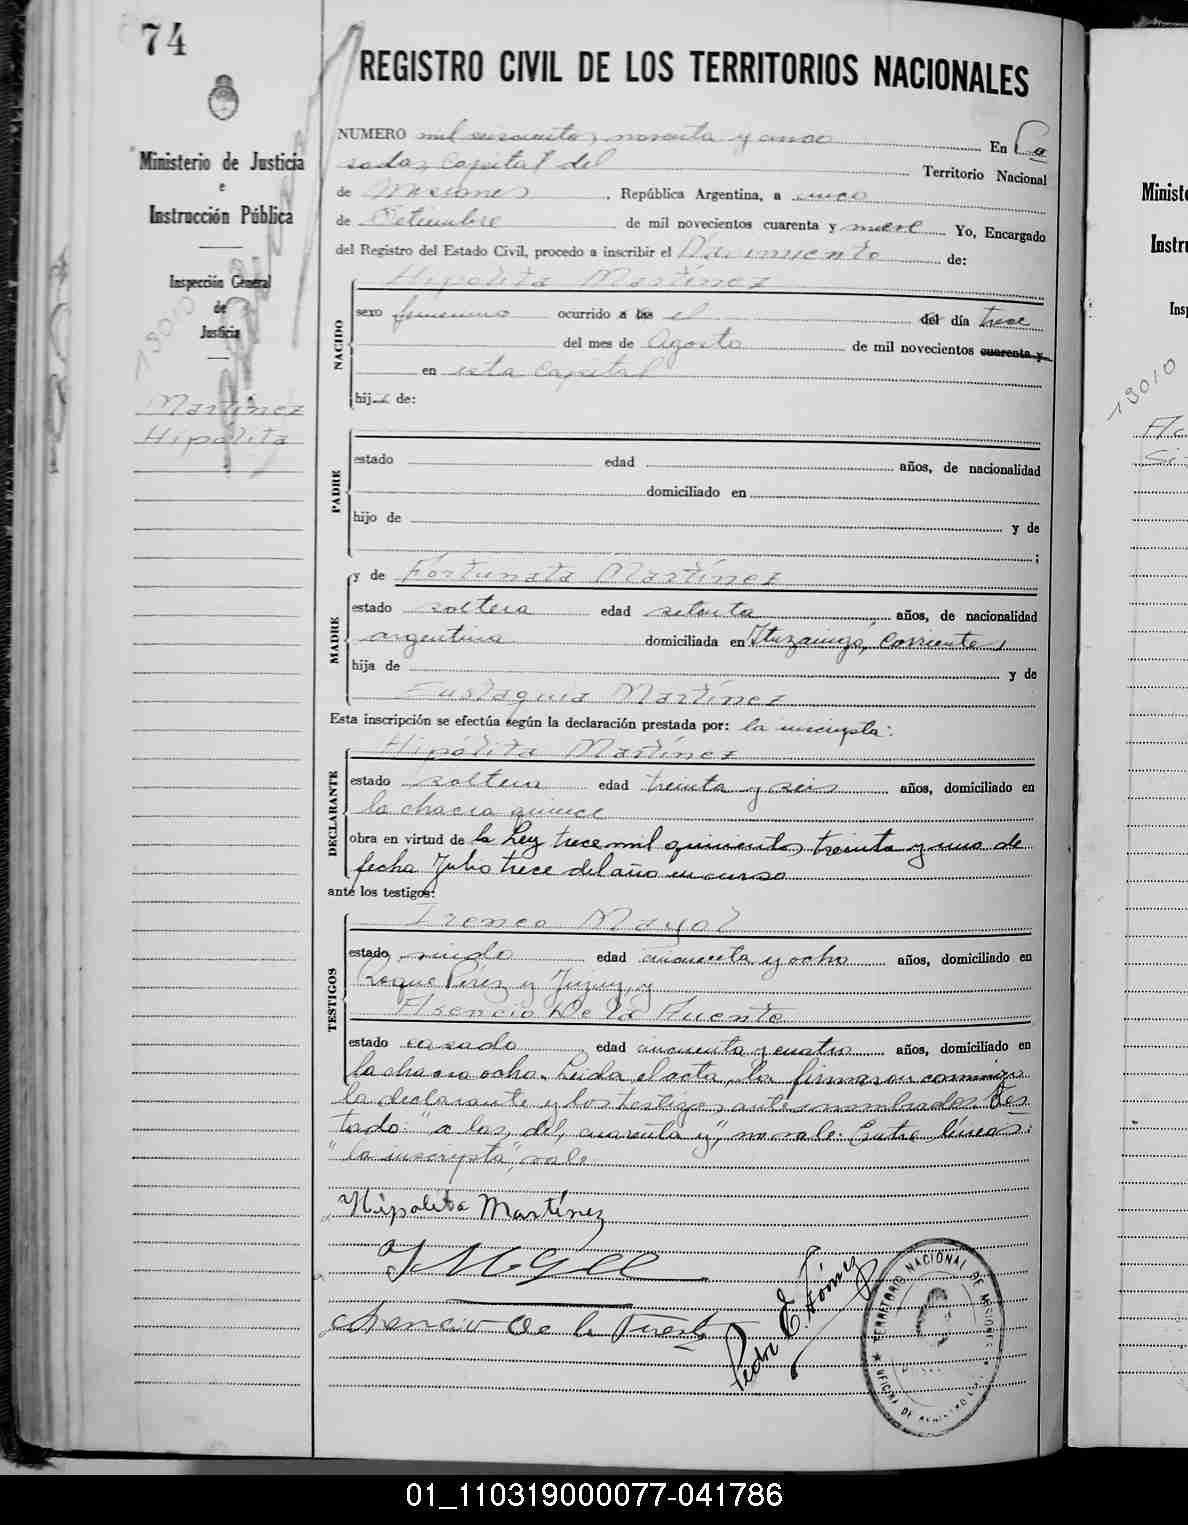 74
Ministerio de Justicia
e
Instrucción Pública
Inspección General
de
Justicia
19010
Martínez
Hipólita
REGISTRO CIVIL DE LOS TERRITORIOS NACIONALES
NUMERO mil noventa y cinco En Po
sadas, Capital del Territorio Nacional
de Misiones, República Argentina, a cinco
de Setiembre de mil novecientos cuarenta y nueve Yo, Encargado
del Registro del Estado Civil, procedo a inscribir el Nacimiento de:
Hipólita Martínez
NACIDO
sexo femenino ocurrido a las el del día trece
del mes de Agosto de mil novecientos cuarenta y
en esta Capital
hija de:
PADRE
estado edad años, de nacionalidad
domiciliado en
hijo de y de
;
MADRE
y de Fortunata Martínez
estado soltera edad setenta años, de nacionalidad
argentina domiciliada en Ituzaingó, Corrientes
hija de y de
Eustaquia Martínez
Esta inscripción se efectúa según la declaración prestada por: la inscripta:
DECLARANTE
Hipólita Martínez
estado soltera edad treinta y seis años, domiciliado en
la chacra quince
obra en virtud de la Ley trece mil quinientos treinta y uno de
fecha Julio trece del año en curso
ante los testigos:
TESTIGOS
Ireneo Mayol
estado viudo edad cincuenta y ocho años, domiciliado en
Roque Pérez y Jujuy, y
Asencio De la Fuente
estado casado edad cincuenta y cuatro años, domiciliado en
la chacra ocho. Leida el acta, la firmaron conmigo
la declarante y los testigos antesnombrados. Tes
tado: "a las, del, cuarenta y", no vale. Entre líneas:
"la inscripta", vale
Hipolita Martínez
Asencio De la Fuente
Pedro E. Gómez
TERRITORIO NACIONAL DE MISIONES
OFICINA DE REGISTRO
Minist
Instru
Ins
19010
01_110319000077-041786